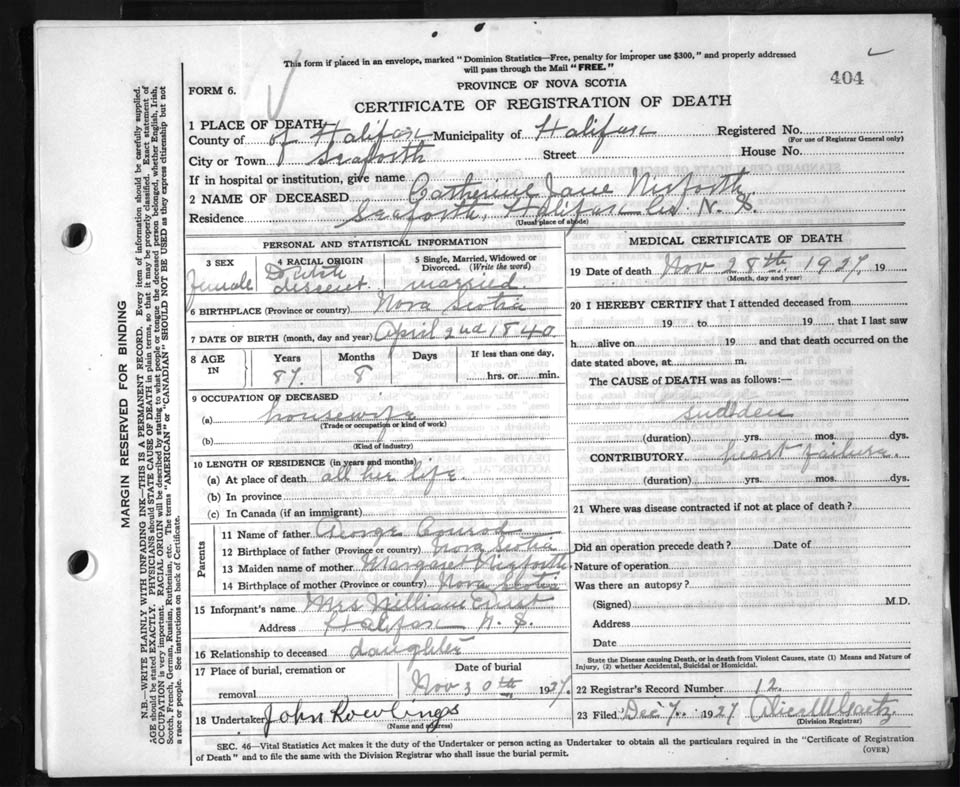 This form if placed in an envelope, marked "Dominion Statistics—Free, penalty for improper use $300," and properly addressed
will pass through the Mail "FREE."
404
FORM 6.
PROVINCE OF NOVA SCOTIA
CERTIFICATE OF REGISTRATION OF DEATH
1 PLACE OF DEATH
County of Halifax Municipality of Halifax Registered No.
(For use of Registrar General only)
City or Town Seaforth Street House No.
If in hospital or institution, give name
2 NAME OF DECEASED Catherine Jane
Residence Seaforth, Halifax Co. N. S.
(Usual place of abode)
PERSONAL AND STATISTICAL INFORMATION
3 SEX 4 RACIAL ORIGIN 5 Single, Married, Widowed or
Divorced. (Write the word)
female Dutch
married.
6 BIRTHPLACE (Province or country) Nova Scotia
7 DATE OF BIRTH (month, day and year) April 2nd 1840
8 AGE IN Years Months Days If less than one day,
87. 8 hrs. or min.
9 OCCUPATION OF DECEASED
(a) housewife
(Trade or occupation or kind of work)
(b)
(Kind of industry)
10 LENGTH OF RESIDENCE (in years and months)
(a) At place of death all her life.
(b) In province
(c) In Canada (if an immigrant)
Parents
11 Name of father George Conrod
12 Birthplace of father (Province or country) Nova Scotia
13 Maiden name of mother Margaret
14 Birthplace of mother (Province or country) Nova Scotia
15 Informant's name Mrs William
Address Halifax N. S.
16 Relationship to deceased daughter
17 Place of burial, cremation or Date of burial
removal Nov 30th 1927.
18 Undertaker John Rowlings
(Name and address)
MEDICAL CERTIFICATE OF DEATH
19 Date of death Nov 28th. 1927, 19
(Month, day and year)
20 I HEREBY CERTIFY that I attended deceased from
19 to 19 that I last saw
h alive on 19 and that death occurred on the
date stated above, at m.
The CAUSE of DEATH was as follows:—
sudden
(duration) yrs. mos. dys.
CONTRIBUTORY. heart failure.
(duration) yrs. mos. dys.
21 Where was disease contracted if not at place of death?
Did an operation precede death? Date of
Nature of operation
Was there an autopsy?
(Signed) M.D.
Address
Date
State the Disease causing Death, or in death from Violent Causes, state (1) Means and Nature of
Injury, (2) whether Accidental, Suicidal or Homicidal.
22 Registrar's Record Number 12
23 Filed Dec 7. 1927 Alice M Gaetz
(Division Registrar)
SEC. 46—Vital Statistics Act makes it the duty of the Undertaker or person acting as Undertaker to obtain all the particulars required in the "Certificate of Registration
of Death" and to file the same with the Division Registrar who shall issue the burial permit.
(OVER)
MARGIN RESERVED FOR BINDING
N.B.—WRITE PLAINLY WITH UNFADING INK—THIS IS A PERMANENT RECORD. Every item of information should be carefully supplied.
AGE should be stated EXACTLY. PHYSICIANS should STATE CAUSE OF DEATH in plain terms, so that it may be properly classified. Exact statement of
OCCUPATION is very important. RACIAL ORIGIN will be described by stating to what people or tongue the deceased person belonged, whether English, Irish,
Scotch, French, German, Russian, Ruthenian, etc. The terms "AMERICAN" or "CANADIAN" SHOULD NOT BE USED as they express citizenship but not
a race or people. See instructions on back of Certificate.